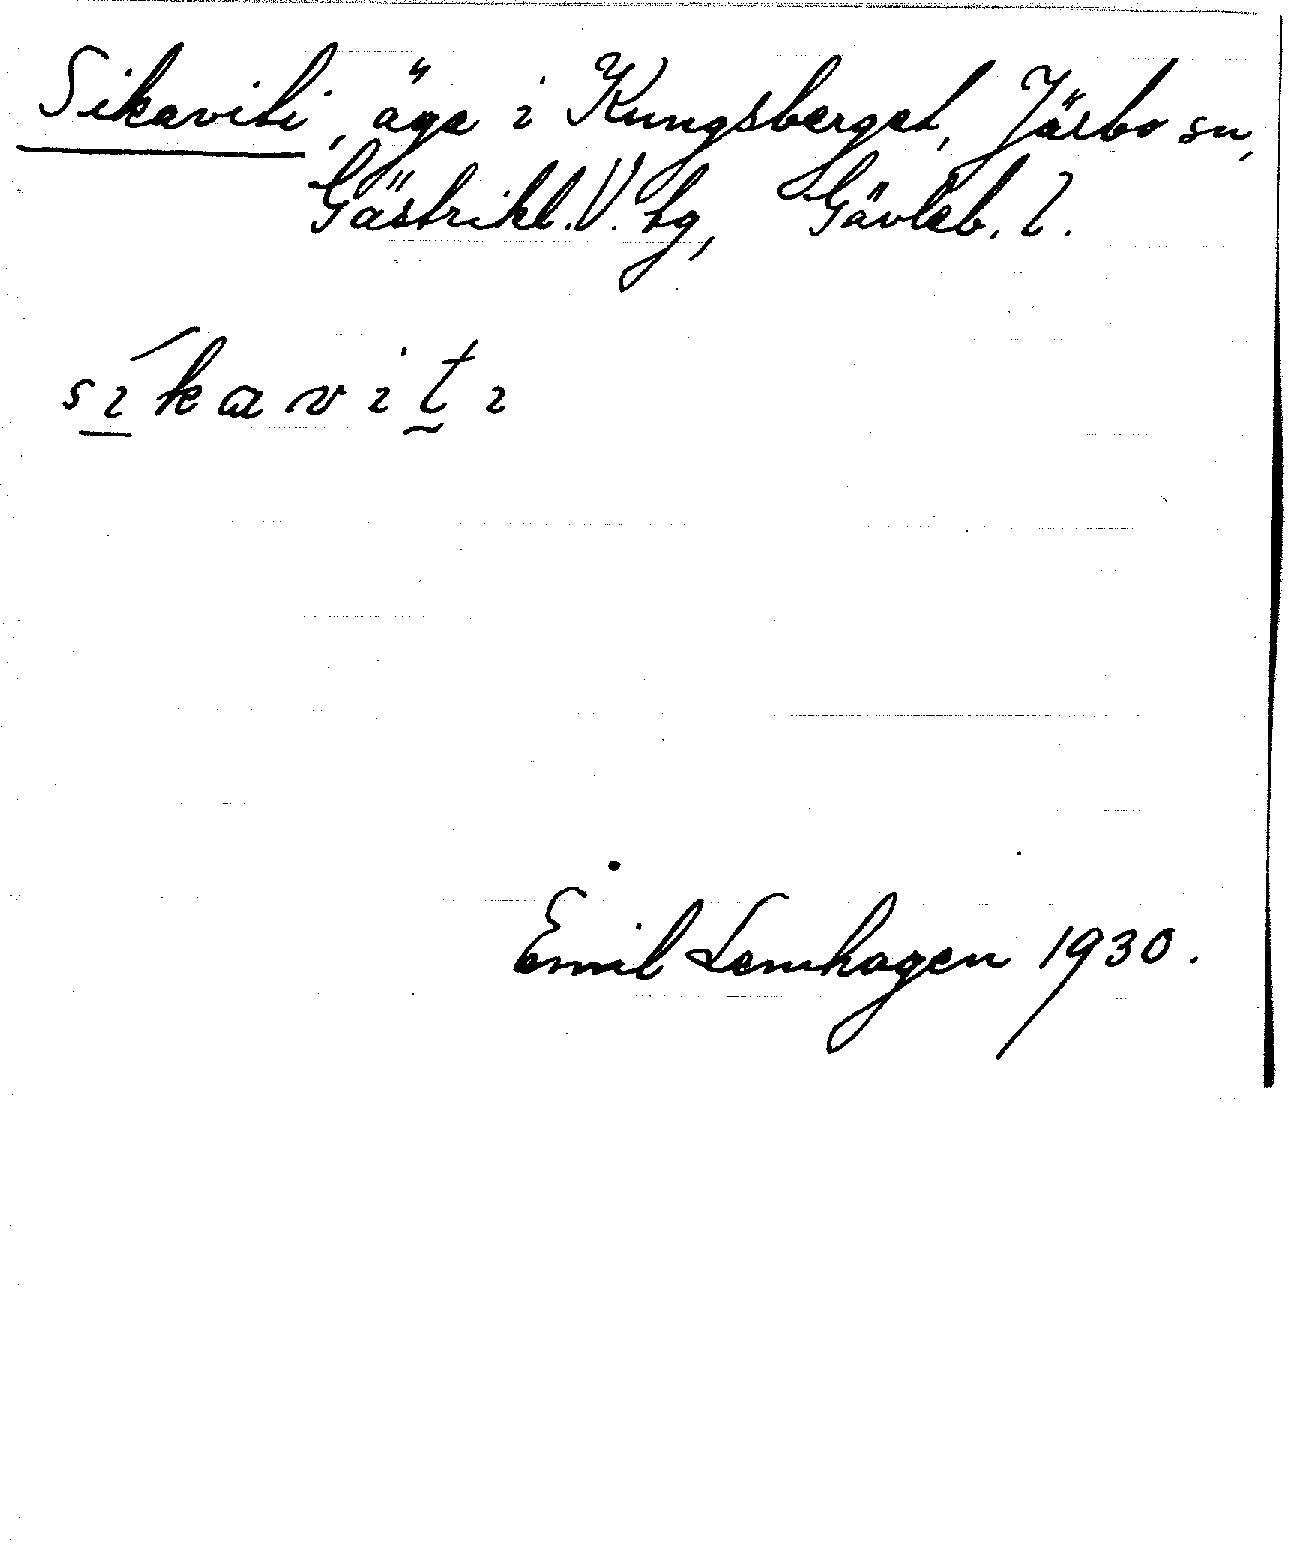 Sikaviti, äga i Kungsberget, Järbo sn,
Gästrikl. V. tg, Gävleb. l.
síkaviti
Emil Lenhagen 1930.